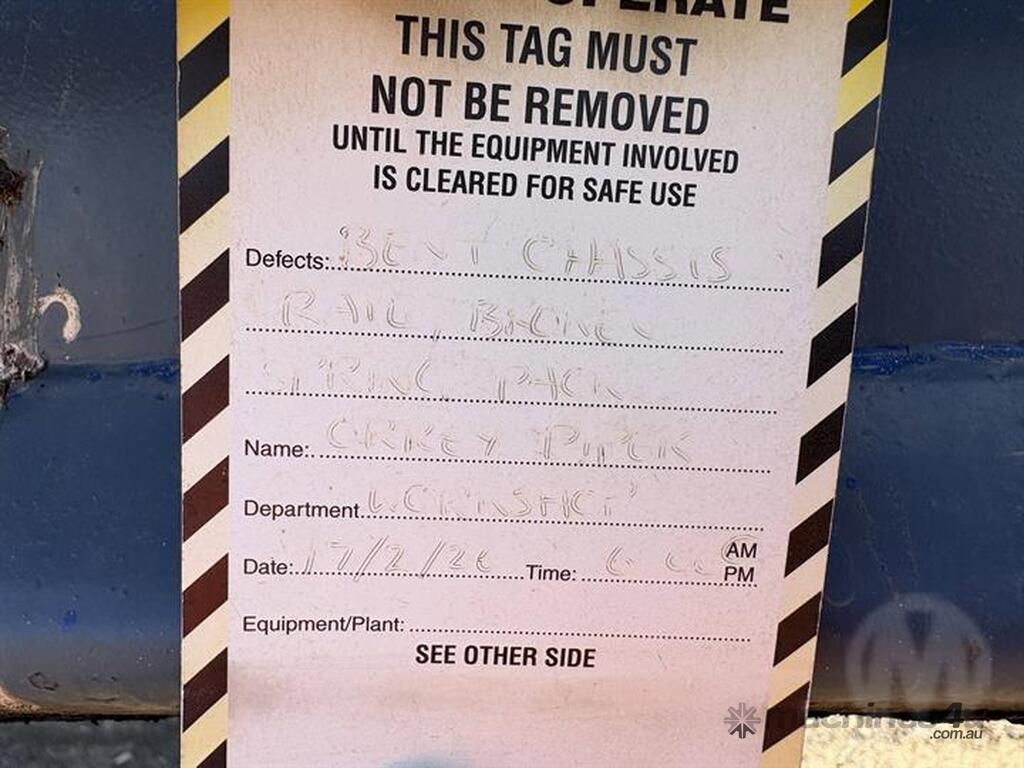 OPERATE
THIS TAG MUST
NOT BE REMOVED
UNTIL THE EQUIPMENT INVOLVED
IS CLEARED FOR SAFE USE
Defects: BENT CHASSIS
RAIL, BROKEN
SPRING PACK
Name:
Department WORKSHOP
Date: 17/2/ Time: 6 AM
PM
Equipment/Plant:
SEE OTHER SIDE
machines4u
.com.au